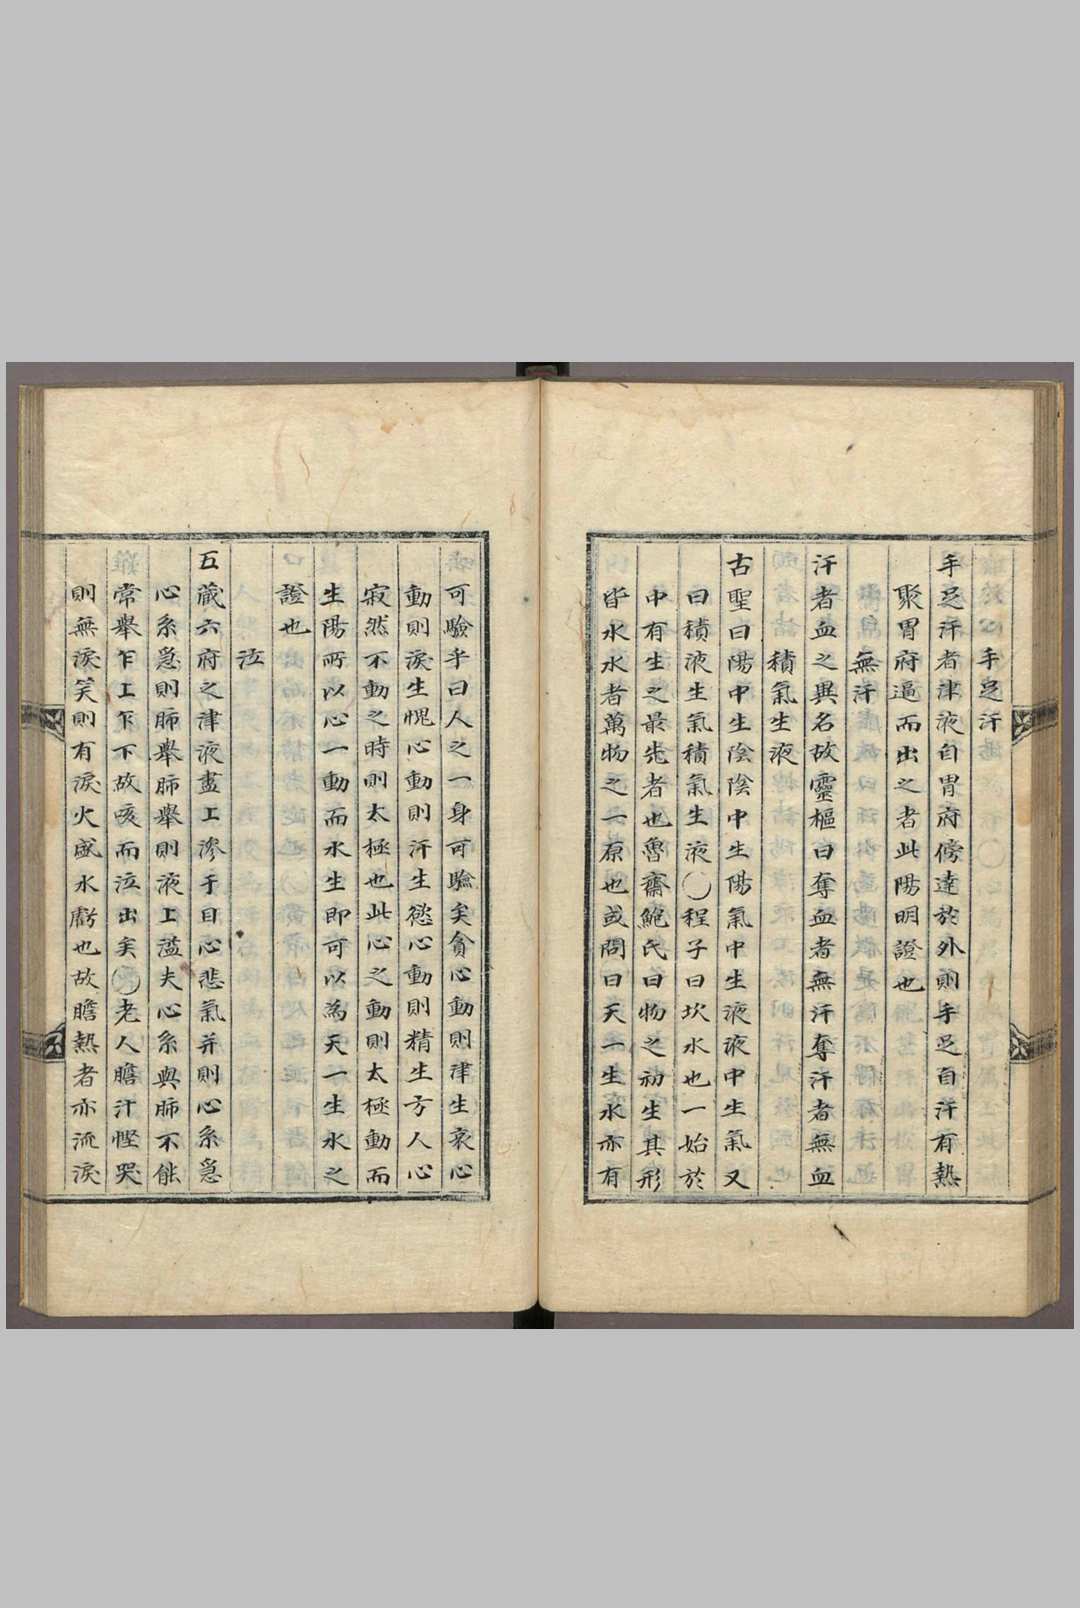 手足汗
手足汗者津液自胃府傍達於外則手足自汗有熱
聚胃府逼而出之者此陽明證也
無汗
汗者血之異名故靈樞曰奪血者無汗奪汗者無血
積氣生液
古聖曰陽中生陰陰中生陽氣中生液液中生氣又
曰積液生氣積氣生液○程子曰坎水也一始於
中有生之最先者也魯齋鮑氏曰物之初生其形
皆水水者萬物之一原也或問曰天一生水亦有
可驗乎曰人之一身可驗矣貪心動則津生哀心
動則淚生愧心動則汗生慾心動則精生方人心
寂然不動之時則太極也此心之動則太極動而
生陽所以心一動而水生即可以為天一生水之
證也
泣
五藏六府之津液盡上滲于目心悲氣并則心系急
心系急則肺舉肺舉則液上溢夫心系與肺不能
常舉乍上乍下故咳而泣出矣○老人膽汁慳哭
則無淚笑則有淚火盛水虧也故膽熱者亦流淚